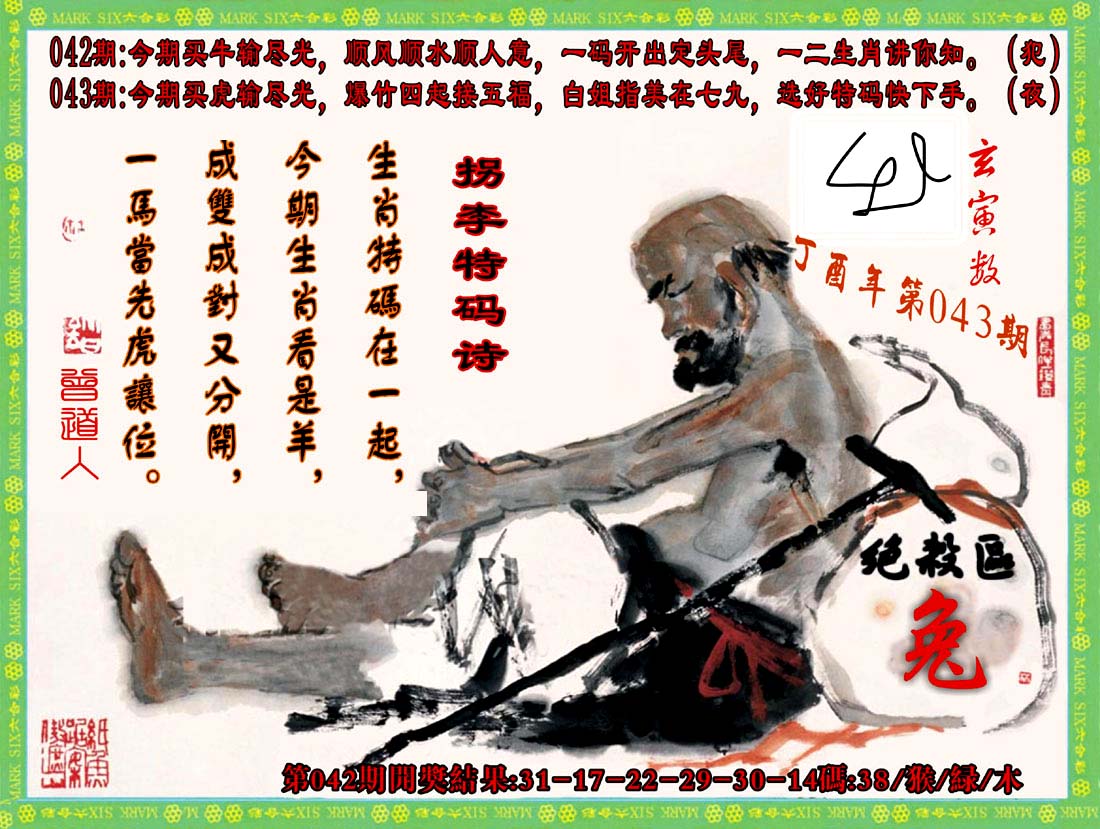 MARK SIX六合彩
042期:今期买牛输尽光，顺风顺水顺人意，一码开出定头尾，一二生肖讲你知。(犯)
043期:今期买虎输尽光，爆竹四起接五福，白姐指美在七九，选好特码快下手。(夜)
玄寅数
丁酉年第043期
拐李特码诗
生肖特碼在一起，
今期生肖看是羊，
成雙成對又分開，
一馬當先虎讓位。
曾道人
绝殺區
兔
第042期開獎結果:31-17-22-29-30-14碼:38/猴/緑/木